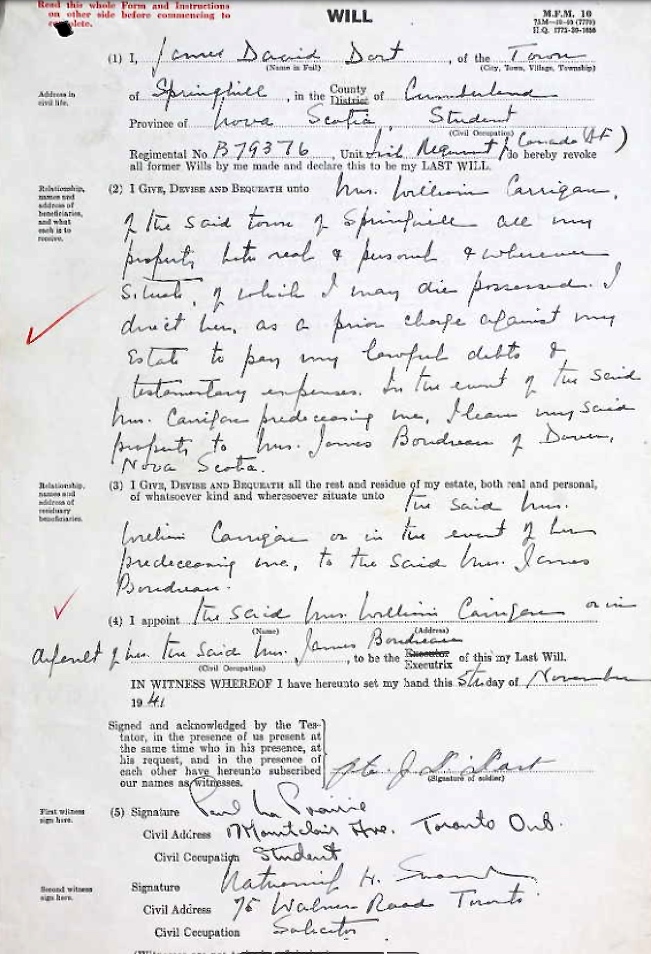 Read this whole Form and Instructions
on other side before commencing to
complete.
WILL
M.F.M. 10
H.Q. 1772-39-1656
(1) I, James David Dort, of the Town
(Name in Full) (City, Town, Village, Township)
Address in
civil life.
of Springhill, in the County District of Cumberland
Province of Nova Scotia, Student
(Civil Occupation)
Regimental No B79376, Unit Regiment, Canada (AF) do hereby revoke
all former Wills by me made and declare this to be my LAST WILL.
Relationship,
names and
address of
beneficiaries,
and what
each is to
receive.
(2) I GIVE, DEVISE AND BEQUEATH unto Mrs. William Carrigan,
of the said town of Springhill all my
property both real & personal & wherever
situate, of which I may die possessed. I
direct her, as a prior charge against my
Estate to pay my lawful debts &
testamentary expenses. In the event of the said
Mrs. Carrigan predeceasing me, I leave my said
property to Mrs. James Boudreau of
Nova Scotia.
Relationship,
names and
address of
residuary
beneficiaries.
(3) I GIVE, DEVISE AND BEQUEATH all the rest and residue of my estate, both real and personal,
of whatsoever kind and wheresoever situate unto the said Mrs.
William Carrigan or in the event of her
predeceasing me, to the said Mrs. James
Boudreau.
(4) I appoint the said Mrs. William Carrigan or in
(Name) (Address)
default of her the said Mrs. James Boudreau, to be the Executor Executrix of this my Last Will.
(Civil Occupation)
IN WITNESS WHEREOF I have hereunto set my hand this 5th day of November
1941
Signed and acknowledged by the Tes-
tator, in the presence of us present at
the same time who in his presence, at
his request, and in the presence of
each other have hereunto subscribed
our names as witnesses.
Pte. J D Dort
(Signature of soldier)
First witness
sign here.
(5) Signature Paul La Prairie
Civil Address 17 Montclair Ave. Toronto Ont.
Civil Occupation Student
Second witness
sign here.
Signature Nathaniel H.
Civil Address 75 Walmer Road Toronto.
Civil Occupation Solicitor